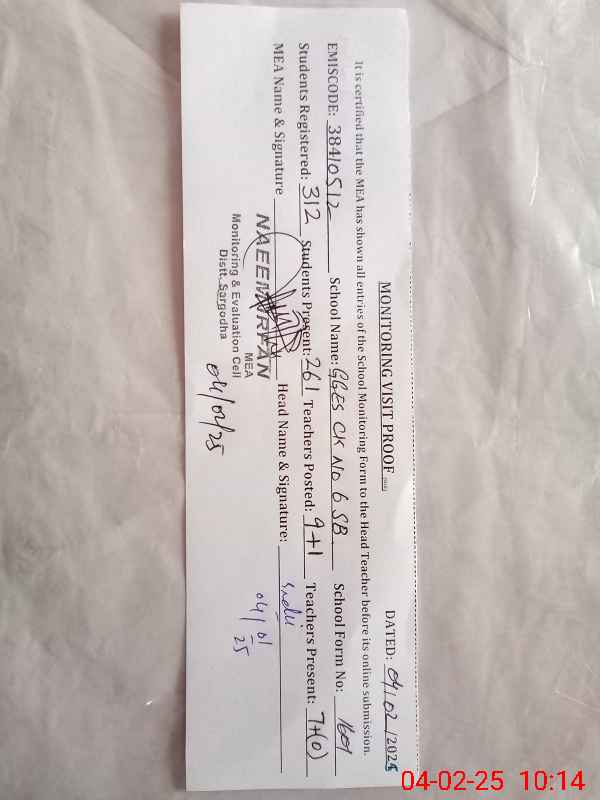 MONITORING VISIT PROOF
DATED: 04/02/2025
It is certified that the MEA has shown all entries of the School Monitoring Form to the Head Teacher before its online submission.
EMISCODE: 38410512 School Name: GGES CK NO 6 SB School Form No: 1601
Students Registered: 312 Students Present: 261 Teachers Posted: 9+1 Teachers Present: 7+(0)
MEA Name & Signature Head Name & Signature:
NAEEM IRFAN
MEA
Monitoring & Evaluation Cell
Distt. Sargodha
04/02/25
04/01/25
04-02-25 10:14